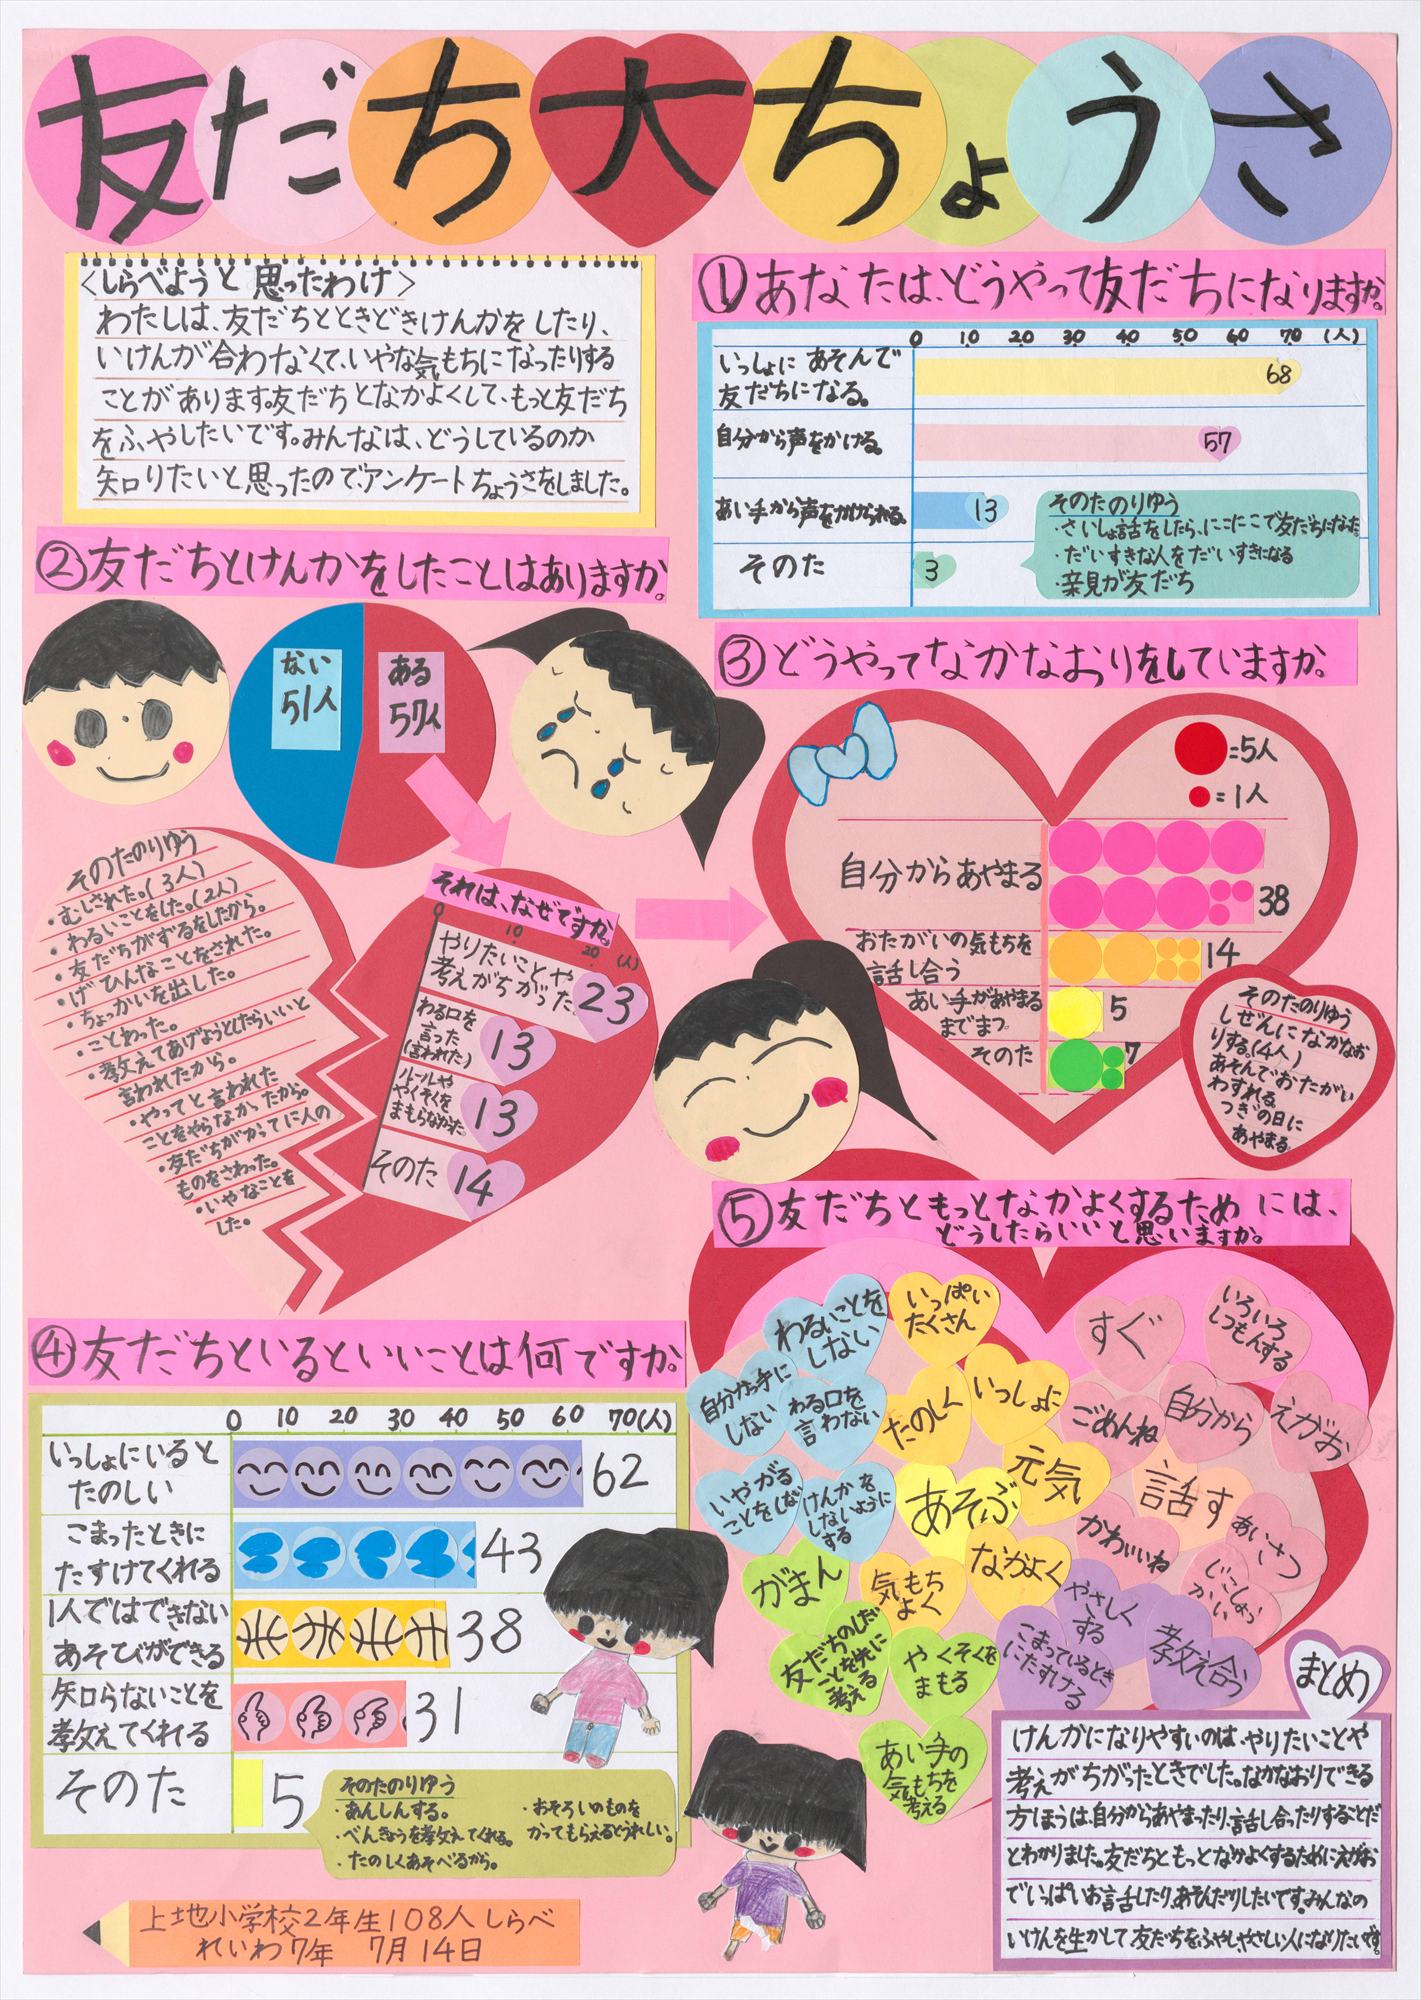 友だち大ちょうさ
<しらべようと思ったわけ>
わたしは、友だちとときどきけんかをしたり、
いけんが合わなくて、いやな気もちになったりする
ことがあります。友だちとなかよくして、もっと友だち
をふやしたいです。みんなは、どうしているのか
知りたいと思ったので、アンケートちょうさをしました。
①あなたは、どうやって友だちになりますか。
0 10 20 30 40 50 60 70 (人)
いっしょにあそんで
友だちになる。
68
自分から声をかける。
57
あい手から声をかけられる。
13
そのた
3
そのたのりゆう
・さいしょ話をしたら、にこにこで友だちになった
・だいすきな人をだいすきになる
・亲見が友だち
②友だちとけんかをしたことはありますか。
ない
51人
ある
57人
それは、なぜですか。
0 10 20 (人)
やりたいことや
考えがちがった
23
わる口を
言った
(言われた)
13
ルールや
やくそくを
まもらなかった
13
そのた
14
そのたのりゆう
・むしされた。(3人)
・わるいことをした。(2人)
・友だちがずるをしたから。
・げひんなことをされた。
・ちょっかいを出した。
・ことわった。
・教えてあげようとしたらいいと
言われたから。
・やってと言われた
ことをやらなかったから。
・友だちがかってに人の
ものをさわった。
・いやなことを
した。
③どうやってなかなおりをしていますか。
=5人
=1人
自分からあやまる
38
おたがいの気もちを
話し合う
14
あい手があやまる
までまつ。
5
そのた
7
そのたのりゆう
しぜんになかなお
りする。(4人)
あそんでおたがい
わすれる
つぎの日に
あやまる。
④友だちといるといいことは何ですか。
0 10 20 30 40 50 60 70(人)
いっしょにいると
たのしい
62
こまったときに
たすけてくれる
43
1人ではできない
あそびができる
38
知らないことを
教えてくれる
31
そのた
5
そのたのりゆう
・あんしんする。
・べんきょうを教えてくれる。
・たのしくあそべるから。
・おそろいのものを
かってもらえるとうれしい。
⑤友だちともっとなかよくするためには、
どうしたらいいと思いますか。
わるいことを
しない
いっぱい
たくさん
すぐ
いろいろ
しつもんする
自分かっ手に
しない
わる口を
言わない
たのしく
いっしょに
ごめんね
自分から
えがお
いやがる
ことをしない
けんかを
しないように
する
あそぶ
元気
話す
かわいいね
あいさつ
じこしょう
かい
がまん
気もち
よく
なかよく
やさしく
する
友だちのしたい
ことを先に
考える
やくそくを
まもる
こまっているとき
にたすける
教え合う
あい手の
気もちを
考える
まとめ
けんかになりやすいのは、やりたいことや
考えがちがったときでした。なかなおりできる
方ほうは、自分からあやまったり、話し合ったりすることだ
とわかりました。友だちともっとなかよくするためにえがお
でいっぱいお話したり、あそんだりしたいです。みんなの
いけんを生かして友だちをふやし、やさしい人になりたいです。
上地小学校2年生108人しらべ
れいわ7年 7月14日